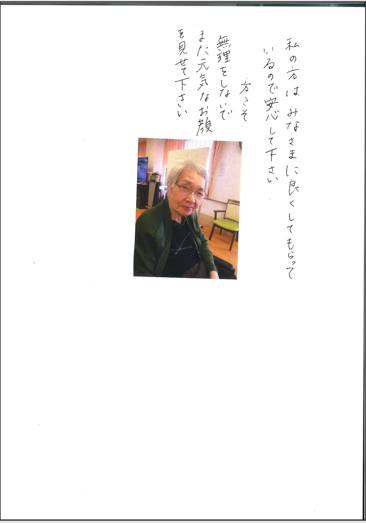 私の方は みなさまに良くしてもらって
いるので安心して下さい
方こそ
無理をしないで
また元気なお顔
を見せて下さい